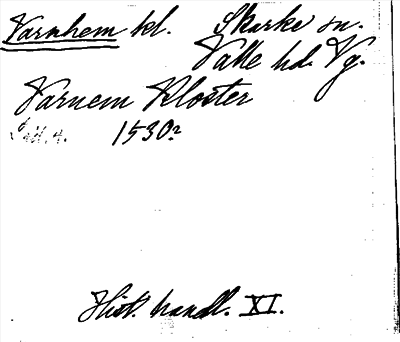 Varnhem kl. Skarke sn.
Valle hd. Vg.
Varnem Kloster
1530?
Hist. handl. XI.